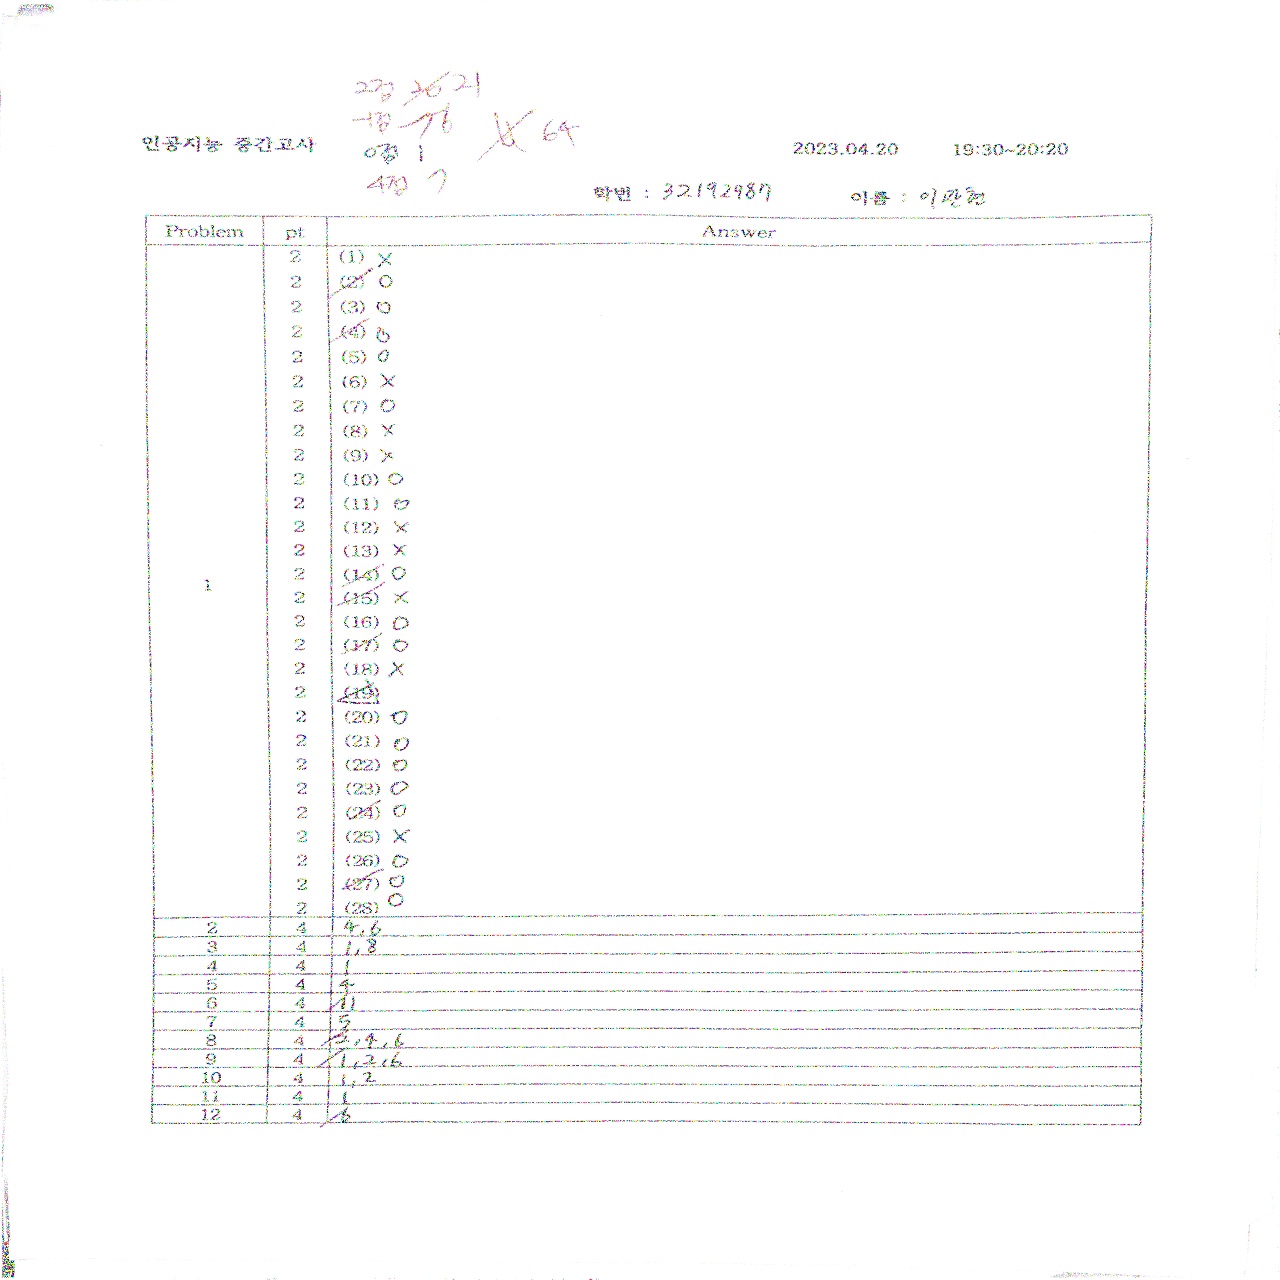 2점 21
-1점 6 64
인공지능 중간고사 0점 1 2023.04.20 19:30~20:20
4점 7
학번 : 32192987 이름 : 이관현
Problem pt Answer
2 (1) X
2 (2) O
2 (3) O
2 (4) O
2 (5) O
2 (6) X
2 (7) O
2 (8) X
2 (9) X
2 (10) O
2 (11) O
2 (12) X
2 (13) X
2 (14) O
1 2 (15) X
2 (16) O
2 (17) O
2 (18) X
2 (19)
2 (20) O
2 (21) O
2 (22) O
2 (23) O
2 (24) O
2 (25) X
2 (26) O
2 (27) O
2 (28) O
2 4 4,6
3 4 1,8
4 4 1
5 4 4
6 4 11
7 4 5
8 4 2,4,6
9 4 1,2,6
10 4 1,2
11 4 1
12 4 6